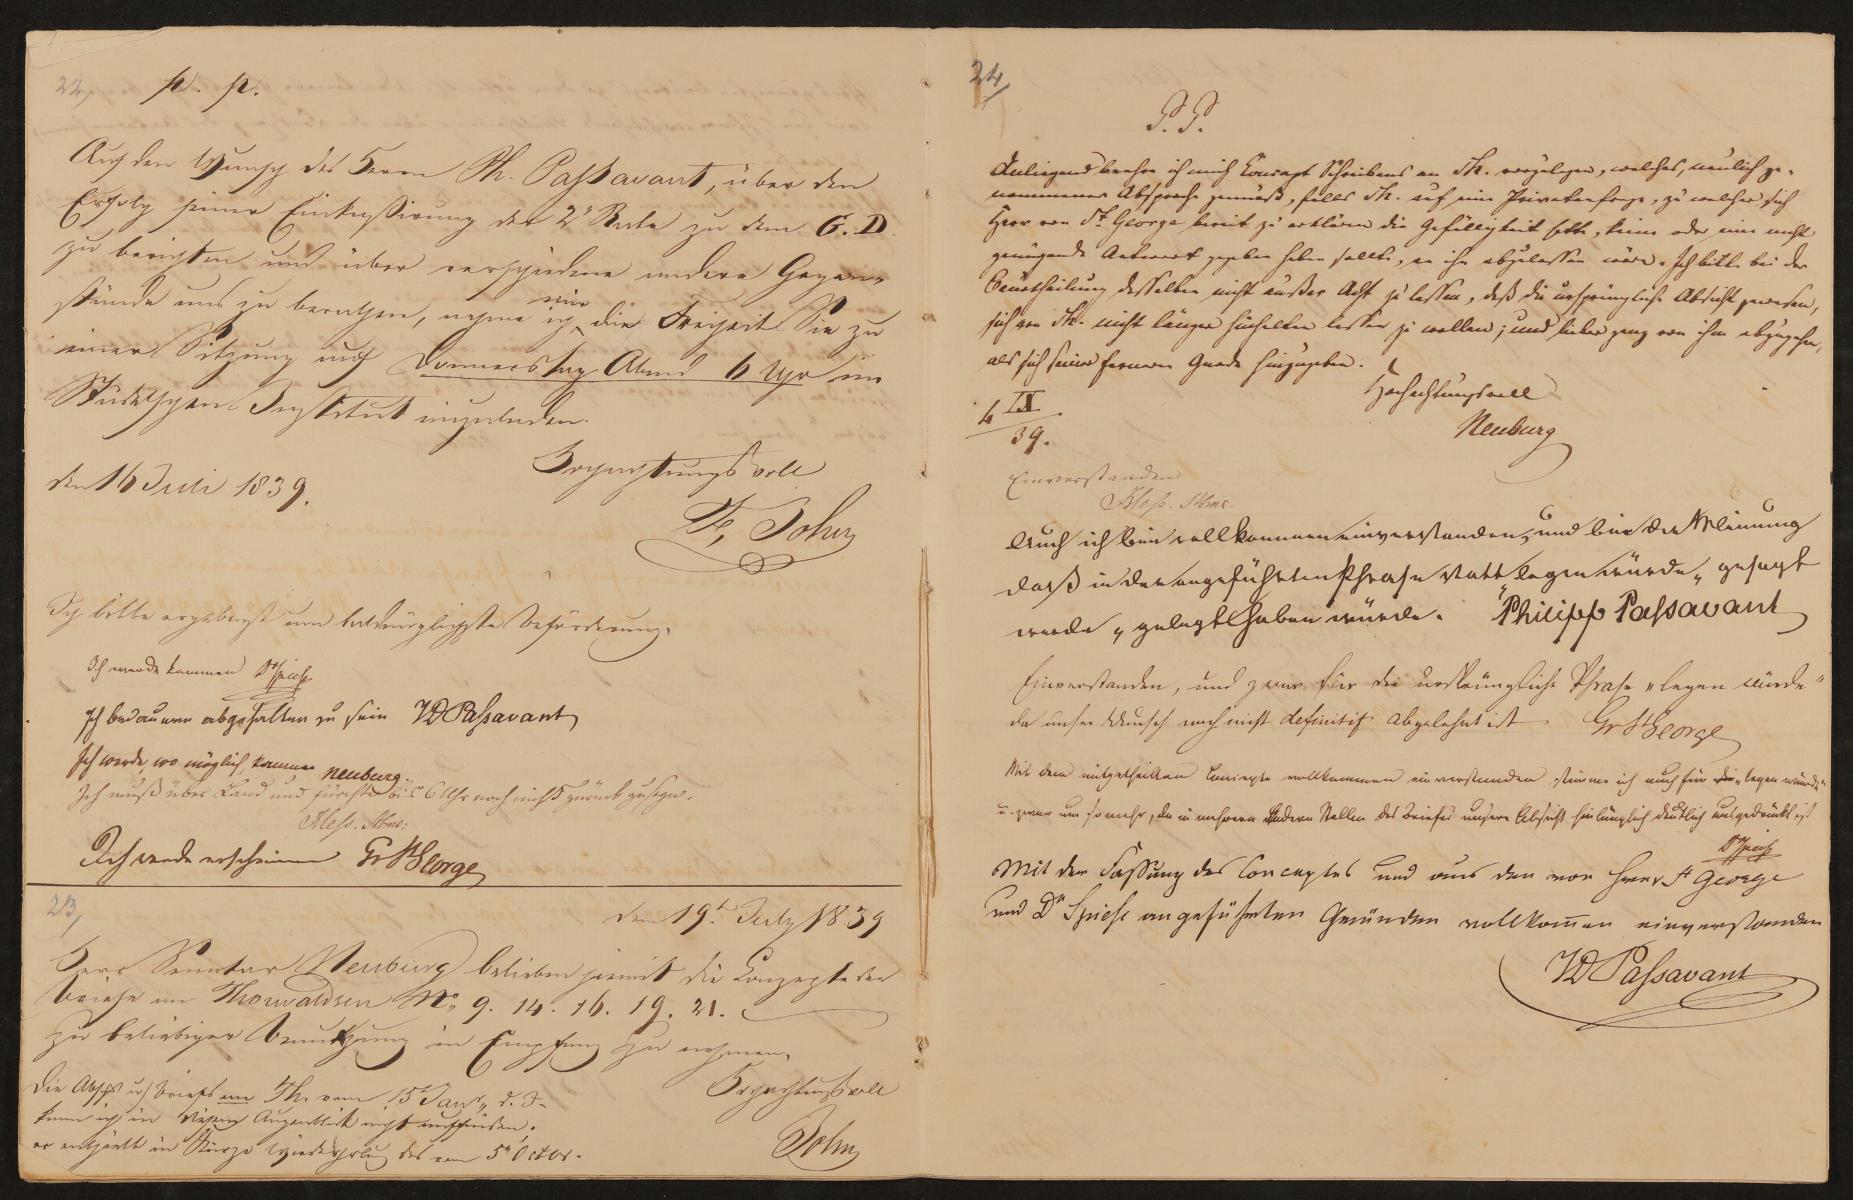 22,
p. p.
Auf den Wunsch des Herrn Ph. Passavant, über den
Erfolg seiner Einkassirung der 2n Rate zu dem G. D.
zu berichten und über verschiedene andere Gegen-
stände uns zu berathen, nehme ich mir die Freiheit Sie zu
einer Sitzung auf Donnerstag Abend 6 Uhr im
Städelschen Institut einzuladen.
Hochachtungsvoll
den 16 Juli 1839.
F. John
Ich bitte ergebenst um baldmöglichste Beförderung.
Ich werde kommen Dr Spiess
Ich bedauere abgehalten zu sein JD Passavant
Ich werde, wo möglich, kommen Neuburg.
Ich muß über Land und fürchte bis 6 Uhr noch nicht zurück zu seyn.
Mess.
Ich werde erscheinen Gr St George
23,
den 19t July 1839
Herr Senator Neuburg belieben hiemit die Conzepte der
Briefe an Thorwaldsen No 9. 14. 16. 19. 21.
zu beliebiger Benutzung in Empfang zu nehmen.
Hochachtungsvoll
Die Abschft d/ Briefs an Th. vom 15 Janr d. J.
kann ich in diesem Augenblick nicht auffinden.
er enthielt in Kürze Wiederholung des vom 5n Octor.
John
24
P. P.
Anliegend beehre ich mich Concept Schreibens an Th. vorzulegen, welches, neulich ge-
nommener Absprache gemäß, falls Th. auf eine Privatanfrage, zu welcher sich
Herr von St George bereit zu erklären die Gefälligkeit hatte, keine oder eine nicht
genügende Antwort gegeben haben sollte, an ihn abzulassen wäre. Ich bitte bei der
Beurtheilung desselben nicht außer Acht zu lassen, daß die ursprüngliche Absicht gewesen,
sich von Th. nicht länger hinhalten lassen zu wollen; und lieber ganz von ihm abzugehen,
als sich seiner ferneren Gnade hinzugeben.
Hochachtungsvoll
4 IX
39.
Neuburg
Einverstanden
Mess.
Auch ich bin vollkommen einverstanden, und bin der Meinung
daß in der angeführten Phrase statt „legen würde„ gesagt
werde „gelegt haben würde. Philipp Passavant
Einverstanden, und zwar für die ursprüngliche Phrase „legen würde"
da unser Wunsch noch nicht definitif abgelehnt ist Gr St George
Mit dem mitgetheilten Concepte vollkommen einverstanden stimme ich auch für „legen würde"
u. zwar um so mehr, da in mehreren andern Stellen des Briefes unsere Absicht hinlänglich deutlich ausgedrückt ist
Dr Spiess
Mit der Fassung des Conceptes und aus den von Herrn St George
und Dr Spiess angeführten Gründen vollkommen einverstanden
JD Passavant